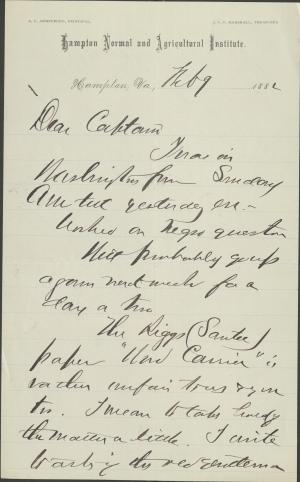 S. C. ARMSTRONG, PRINCIPAL. J. F. B. MARSHALL, TREASURER.
Hampton Normal and Agricultural Institute.
Hampton, Va., Feb 9 1882
Dear Captain
I was in
Washington from Sunday
AM till yesterday
Worked on Negro question
Will probably go up
again next week for a
day or two
The Riggs (Santee)
paper "Word Carrier" is
rather unfair to us & you
too. I mean to take
the matter a little. I write
to ask the red gentleman